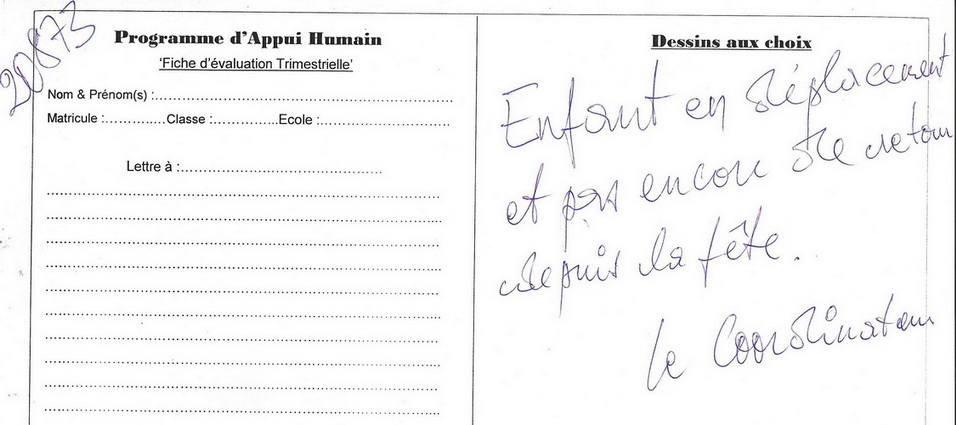 20873
Programme d'Appui Humain
'Fiche d'évaluation Trimestrielle'
Nom & Prénom(s) :
Matricule :.............Classe :..............Ecole :
Lettre à :
Dessins aux choix
Enfant en déplacement
et pas encore de retour
depuis la fête.
le Coordinateur